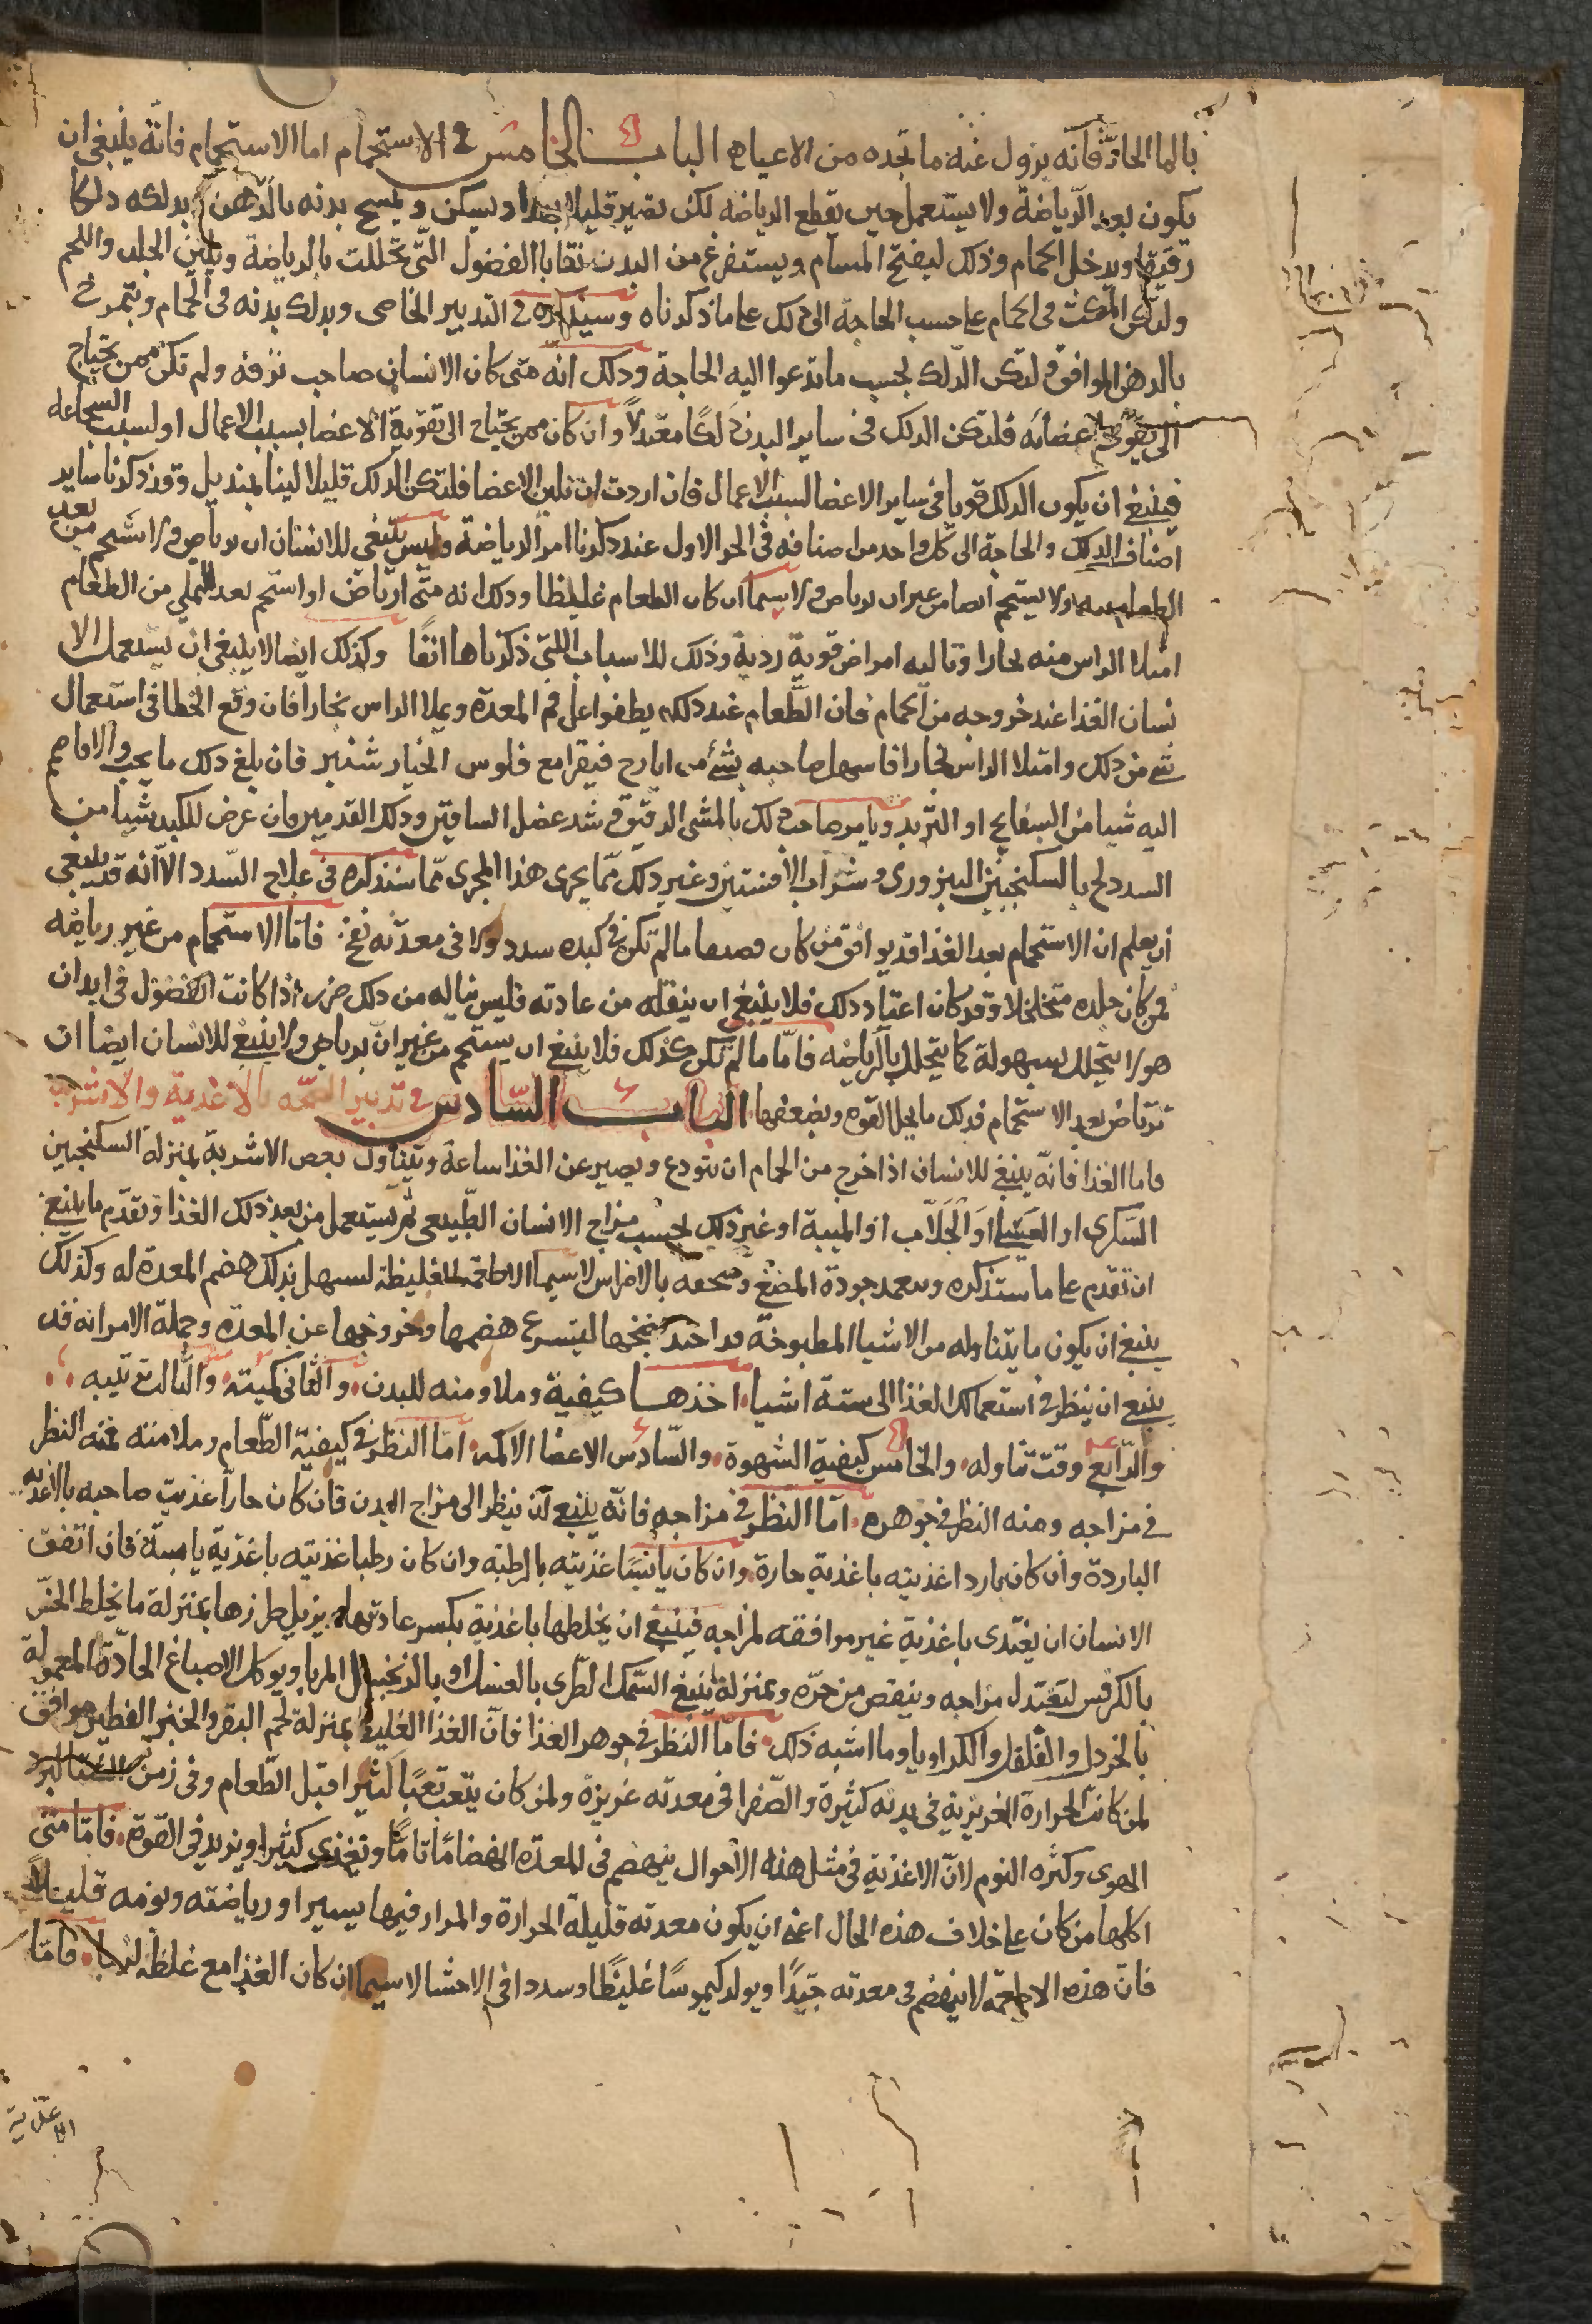 بالما الحار فانه يزول عنه ما تجده من الاعياء الباب الخامس في الاستحمام اما الاستحمام فانه ينبغي ان
يكون بعد الرياضة ولا يستعمل حين يقطع الرياضه لكن يصير قليلا ويسكن ويمسح بدنه بالدهن يدلكه دلكا
رقيقا ويدخل الحمام وذلك ليفتح المسام ويستفرغ من البدن بقايا الفضول التي تحللت بالرياضة ويلين الجلد واللحم
وليكن المكث في الحمام على حسب الحاجة الى ذلك على ما ذكرناه وسنذكره في التدبير الخاصى ويدلك بدنه في الحمام ويتمرخ
بالدهن الموافق ولتكن الدلك بحسب ما تدعوا اليه الحاجة وذلك انه متى كان الانسان صاحب ترفه ولم تكن ممن يحتاج
الى تقوية اعضائه فلتكن الدلك في ساير البدن دلكا معتدلا وان كان ممن يحتاج الى تقوية الاعضا بسبب الاعمال او لسبب الشجاعه
فينبغي ان يكون الدلك قويا في ساير الاعضا لسبب الاعمال فان اردت ان تلين الاعضا فلتكن الدلك قليلا لينا بمنديل وقد ذكرنا ساير
اصناف الدلك والحاجة الى كل واحد من اصنافه في الجز الاول عند ذكرنا امر الرياضة وليس ينبغي للانسان ان يرتاض ولا استحم من بعد
الطعام ولا يستحم ايضا من غير ان يرتاض ولا سيما ان كان الطعام غليظا وذلك انه متى ارتاض او استحم بعد التملي من الطعام
امتلا الراس منه بخارا وتاليه امراض قوية ردية وذلك للاسباب اللتي ذكرناها انفا وكذلك ايضا لا ينبغي ان يستعمل الا
نسان الغذا عند خروجه من الحمام فان الطعام عند ذلك يطفوا على فم المعدة ويملا الراس بخارا فان وقع الخطا في استعمال
شي من ذلك وامتلا الراس بخارا فاسهل صاحبه بشئ من ايارج فيقرا مع فلوس الخيار شنبر فان بلغ ذلك ما يجب والا فاضم
اليه شيا من البسفايج او التربد ويامر صاحب ذلك بالمشى الرقيق وشد عضل الساقين ودلك القدمين وان عرض للكبد شيا من
السدد بالسكنجبين البزورى وشراب الافسنتين وغير ذلك مما يجرى هذا المجرى مما سنذكره في علاج السدد الا انه قد ينبغي
ان يعلم ان الاستحمام بعد الغذا قد يوافق من كان ما لم تكن في كبده سدد ولا في معدته نفخ فاما الاستحمام من غير رياضه
لمن كان جلده متخلخلا وقد كان اعتاد ذلك فلا ينبغي ان ينقله من عادته فليس يناله من ذلك ضرر اذا كانت الفضول في ابدان
هولا يتحلل بسهولة كما يتحلل بالرياضه فاما ما لم تكن كذلك فلا ينبغي ان يستحم من غير ان يرتاض ولا ينبغي للانسان ايضا ان
ترتاض بعد الاستحمام فذلك ما يحل القوه ويضعفها الباب السادس في تدبير الصحه بالاغذية والاشربه
فاما الغذا فانه ينبغي للانسان اذا خرج من الحمام ان يتودع ويصير عن الغذا ساعة ويتناول بعض الاشربة بمنزلة السكنجبين
السكرى او او الجلاب او الميبة او غير ذلك بحسب مزاج الانسان الطبيعى ثم يستعمل من بعد ذلك الغذا وتقدم ما ينبغي
ان تقدم على ما سنذكره ويتعمد جودة المضغ وسحقه بالاضراس لا سيما الاطعمة الغليظة ليسهل بذلك هضم المعدة له وكذلك
ينبغي ان يكون ما يتناوله من الاشيا المطبوخة قد اجيد نضجها ليتسرع هضمها وخروجها عن المعدة وجملة الامر انه قد
ينبغي ان ينظر في استعمالك الغذا الى ستة اشيا احدها كيفية وملاومته للبدن والثاني كميته والثالث ترتيبه
والرابع وقت تناوله والخامس كيفية الشهوة والسادس الاعضا الالمه اما النظر في كيفية الطعام وملامته فمنه النظر
في مزاجه ومنه النظر في جوهره اما النظر في مزاجه فانه ينبغي ان ينظر الى مزاج البدن فان كان حارا غذيت صاحبه بالاغذيه
الباردة وان كان باردا اغذيته باغذية حارة وان كان يابسا غذيته بالرطبه وان كان رطبا غذيته باغذية يابسة فان اتفق
الانسان ان يغتدى باغذية غير موافقه لمزاجه فينبغي ان يخلطها باغذية بكسر عاديتها ويزيل ضررها بمنزلة ما يخلط الخس
بالكرفس ليعتدل مزاجه وينقص من حره وبمنزلة ينبغي السمك الطرى بالعسل او بالزنجبيل المربا ويوكل الاصباغ الحادة المعمولة
بالخردل والفلفل والكراويا وما اشبه ذلك فاما النظر في جوهر الغذا فان الغذا الغليظ بمنزلة لحم البقر والخبز الفطير موافق
لمن كانت الحرارة الغريزية في بدنه كثيرة والصفرا في معدته غزيرة ولمن كان يتعب تعبا كثيرا قبل الطعام وفي زمن
الهوى وكثره النوم لان الاغذية في مثل هذه الاحوال ينهضم في المعدة انهضاما تاما وتغذى كثيرا ويزيد في القوة فاما متى
اكلها من كان على خلاف هذه الحال اعنى ان يكون معدته قليلة الحرارة والمرار فيها يسيرا ورياضته ونومه قليلا
فان هذه الاطعمه لا ينهضم في معدته جيدا ويولد كيموسا غليظا وسددا في الاحشا لا سيما ان كان الغذا مع غلظه فاما
الاغذية